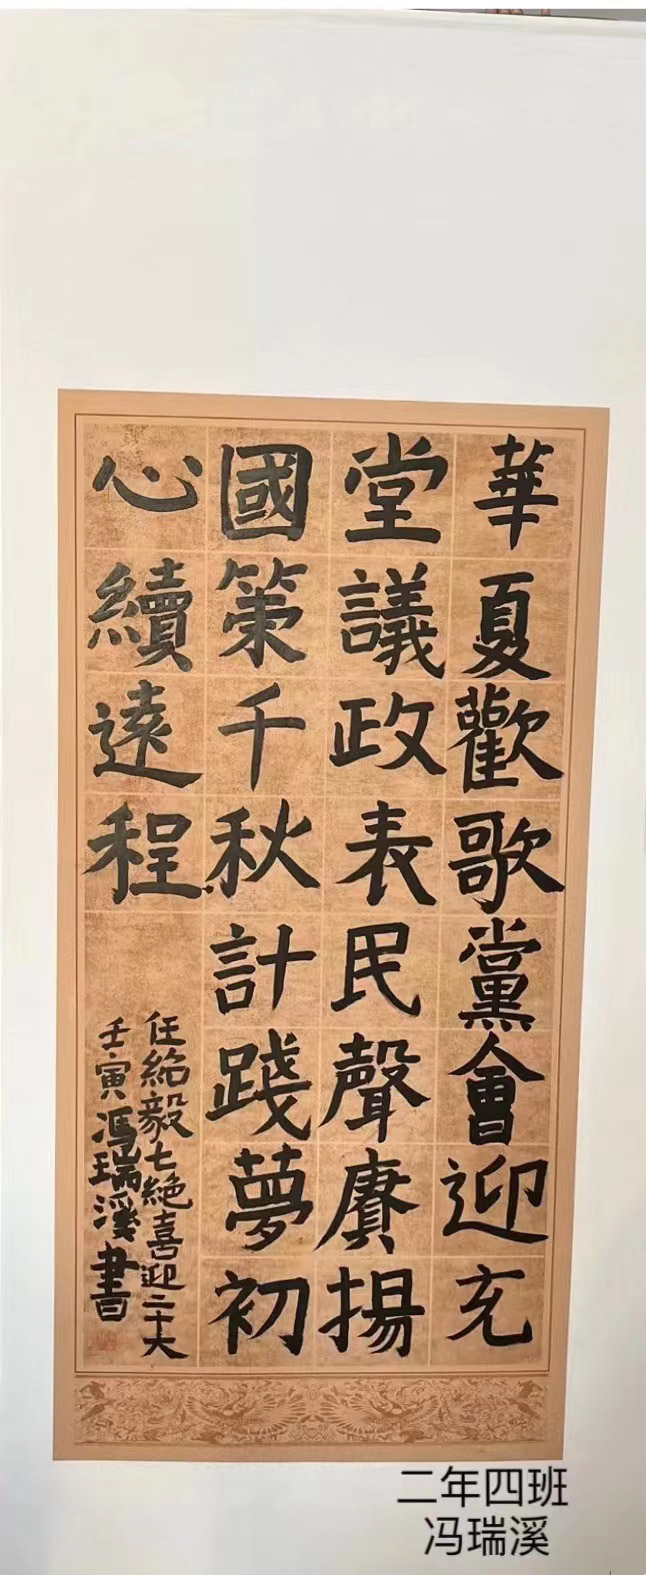 華夏歡歌黨會迎充
堂議政表民聲賡揚
國策千秋計踐夢初
心續遠程
任紹毅七絶喜迎二十大
壬寅馮瑞溪書
二年四班
冯瑞溪